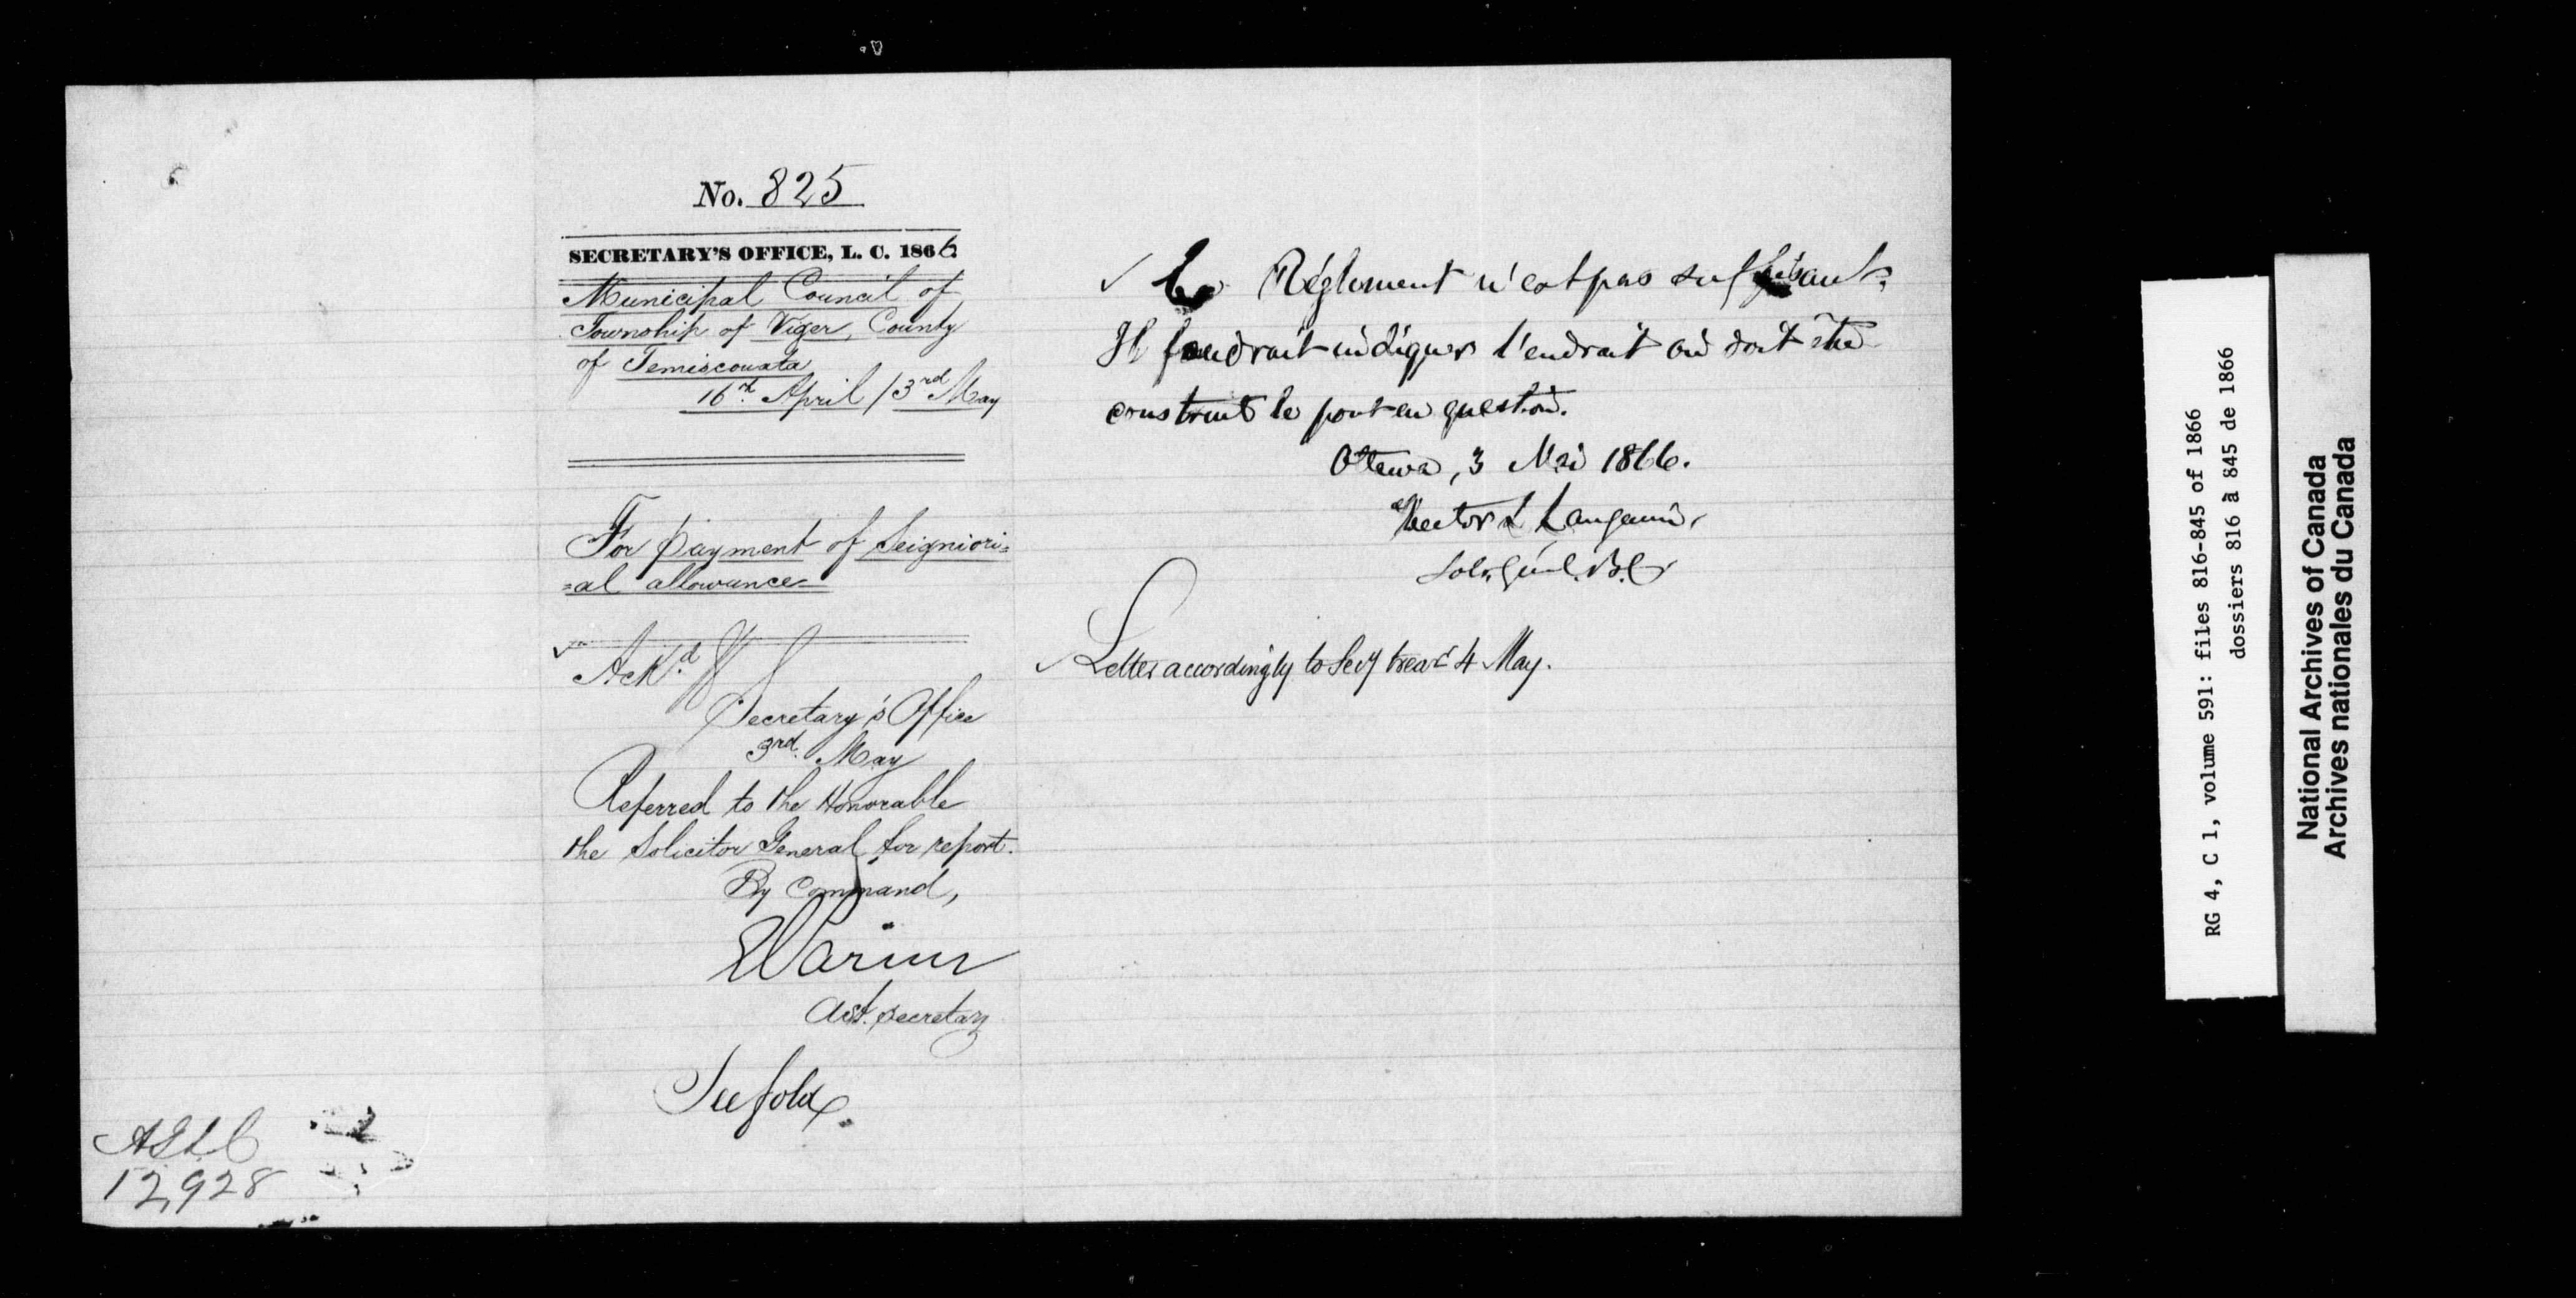 No. 825
SECRETARY'S OFFICE, L. C. 1866
Municipal Council of
Township of Viger, County
of Temiscouata
16th April / 3rd May
For payment of Seigniori=
=al allowance
Ackd.
Secretary's Office
3rd. May
Referred to the Honorable
the Solicitor General for report.
By Command,
Asst. Secretary
See fold
12,928
Ce Réglement n'est pas suffisant.
Il faudrait indiquer l'endroit où doit être
construit le pont en question.
Ottawa, 3 Mai 1866.
Hector L Langevin,
Sol. Génl. B.C.
Letter accordingly to Secy treasr 4 May.
RG 4, C 1, volume 591: files 816-845 of 1866
dossiers 816 à 845 de 1866
National Archives of Canada
Archives nationales du Canada